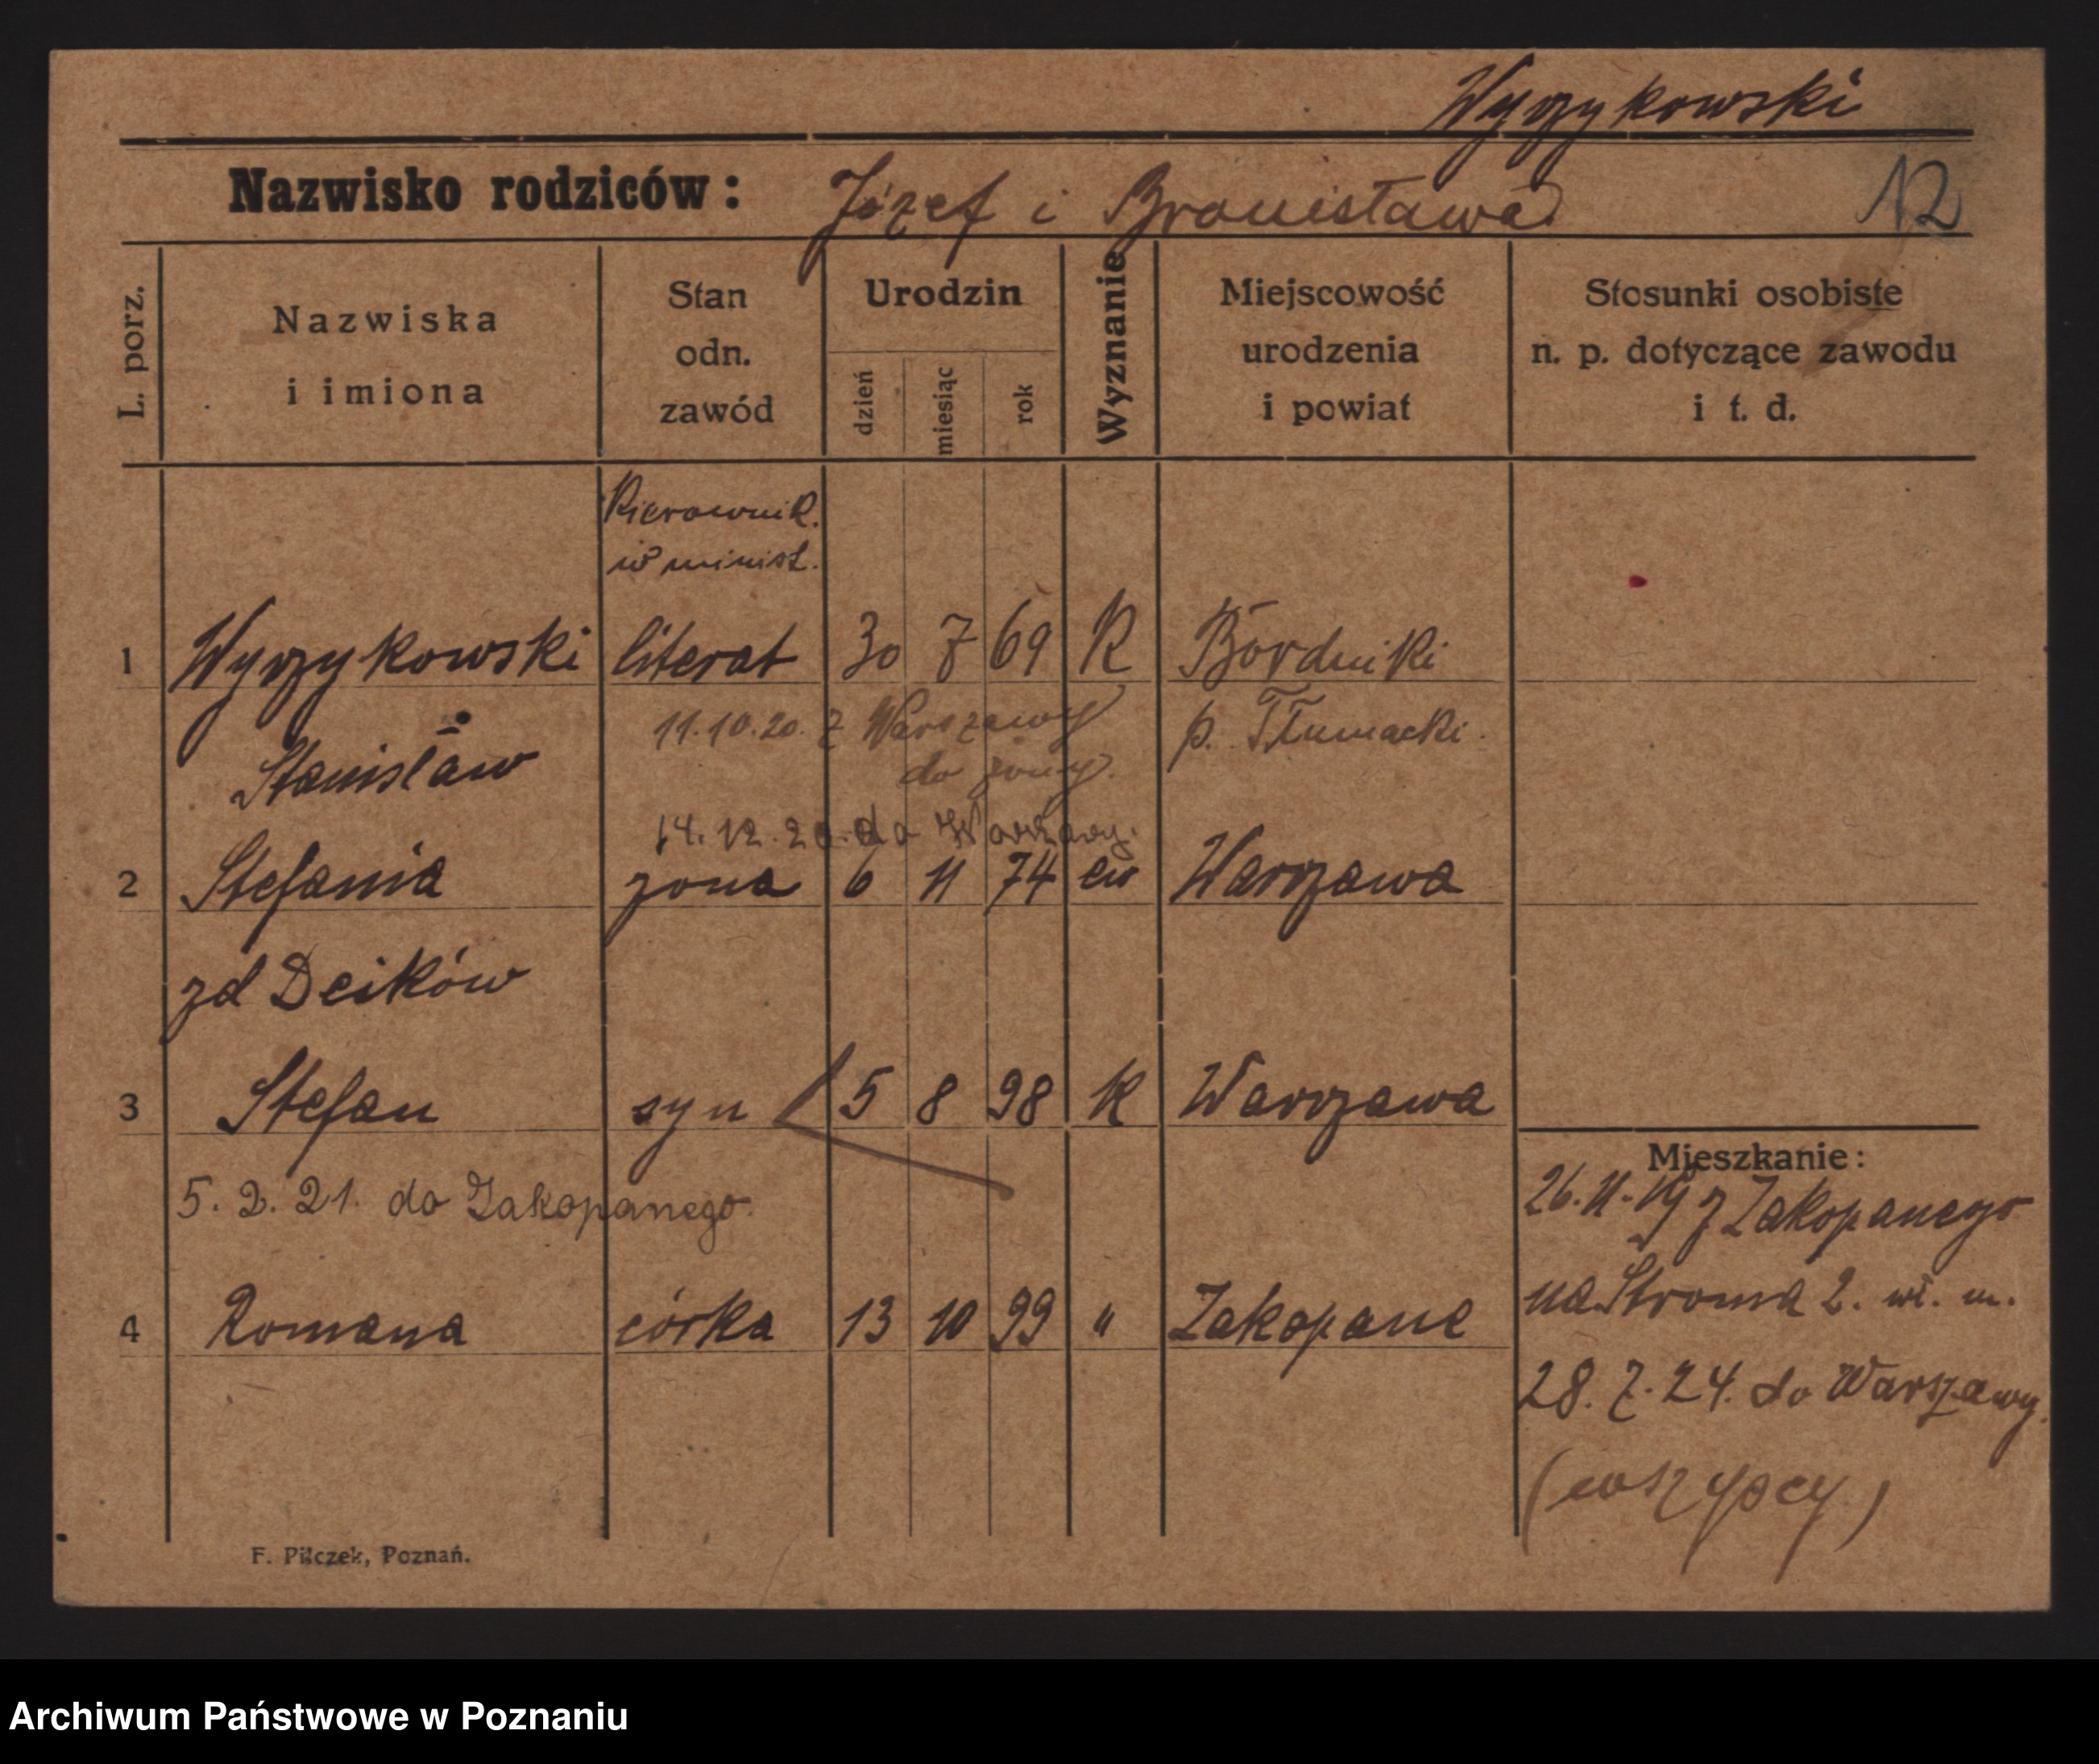 Wyrzykowski
Nazwisko rodziców: Józef i Bronisława
12
L. porz.
Nazwiska
i imiona
Stan
odn.
zawód
Urodzin
dzień
miesiąc
rok
Wyznanie
Miejscowość
urodzenia
i powiat
Stosunki osobiste
n. p. dotyczące zawodu
i t. d.
Kierownik.
w minist.
1 Wyrzykowski literat 30 7 69 K Bordniki
11.10.20. z Warszawy p. Tłumacki.
Stanisław do żony.
14.12.20. do Warszawy.
2 Stefania żona 6 11 74 ew Warszawa
zd Deików
3 Stefan syn 5 8 98 K Warszawa
5. 2. 21. do Zakopanego.
4 Romana córka 13 10 99 " Zakopane
Mieszkanie:
26.11.19 z Zakopanego
na Stroma 2. wł. m.
28. 7. 24. do Warszawy.
(wszyscy)
F. Pilczek, Poznań.
Archiwum Państwowe w Poznaniu